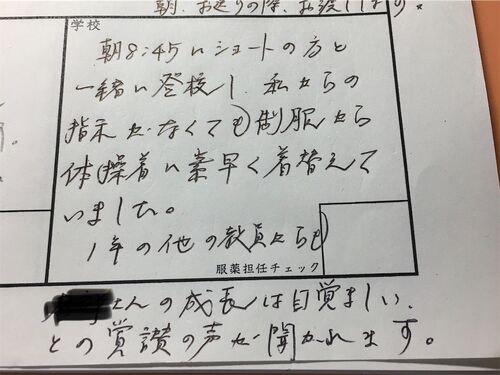 朝、お送りの際、お渡しします。
学校
朝8:45にショートの方と
一緒に登校し、私からの
指示がなくても制服から
体操着に素早く着替えて
いました。
1年の他の教員からも
服薬担任チェック
さんの成長は目覚ましい、
との覚讃の声が聞かれます。